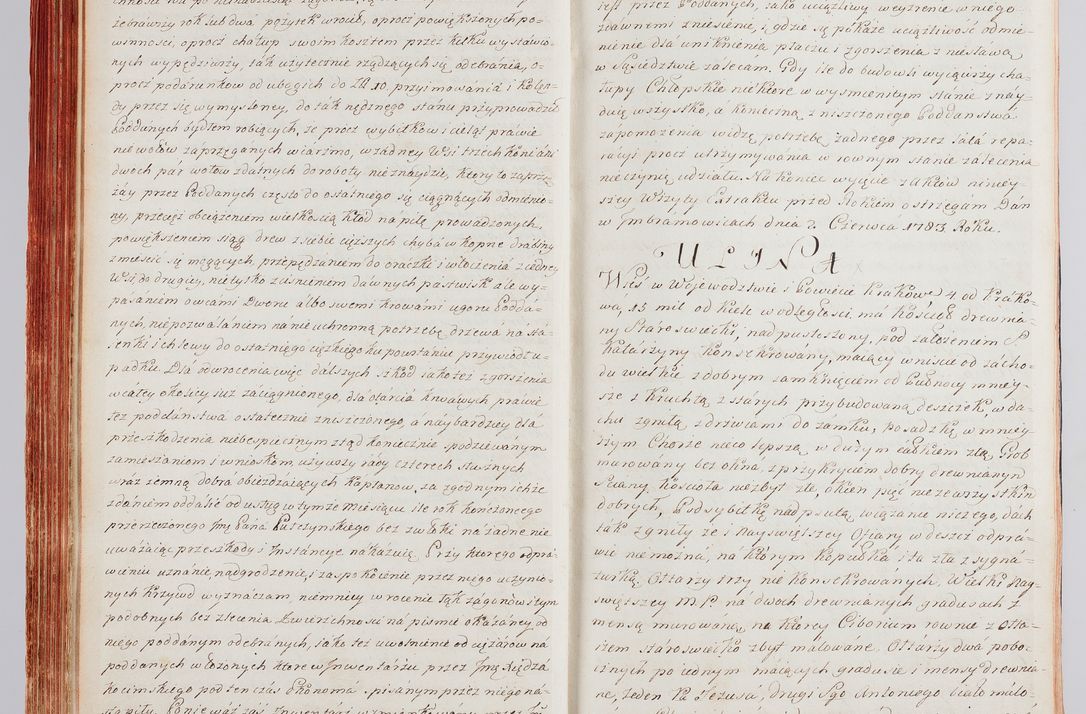 żebrawszy rok lub dwa pożytek wrocił, oprocz powiększonych po-
winnosci, oprocz chałup swoim kosztem przez kilku wystawio-
nych wypędziwszy, tak użytecznie rządzących się odebrania, o-
procz podarunkow od ubogich do Zł. 10. przyimowania i kolęn-
dy przez się wymysloney, do tak nędznego stanu przyprowadził
Poddanych bydłem robiących, że procz wybitkow i cieląt prawie
nie wołow zaprzęganych w iarzmo, w żadney Wsi trzech koni albo
dwoch par wołow zdatnych do roboty nie znaydzie, ktory to zaprzęg
zaś przez Poddanych często do ostatniego się ciągnących odmienio-
ny, przecięż obciążeniem wielkością kłod na piłę prowadzonych,
powiększeniem siąg drew z siebie cięższych chyba w kopne drabiny
zmieścić się mogących, przepędzaniem do oraczki i włoczenia z iedney
Wsi do drugiey, nie tylko zcisnieniem dawnych pastwisk ale wy-
pasaniem owcami Dworu albo swemi krowami ugoru Podda-
nych, niepozwalaniem na nieuchronną potrzebę drzewa na sta-
ienki i chlewy do ostatniego ciężkiego ku powstaniu przywiodł u-
padku. Dla odwrocenia więc dalszych szkod iako też zgorszenia
w całey okolicy iuż zaciągnionego, dla otarcia krwawych prawie
łez poddaństwa ostatecznie zniszczonego, a naybardziey dla
przeszkodzenia niebezpiecznym ztąd koniecznie podzieywanym
zamieszaniom i wnioskom, używszy rady czterech starżnych
wraz zemną dobra obieżdzaiących Kapłanow, za zgodnym ichże
zdaniem oddalić od usług w tymże miesiącu ile rok kończonego
przerzeczonego Jmć Pana Kulczynskiego bez zwłoki na żadne nie
uważaiąc przeszkody i Instancye nakazuię. Przy ktorego odpra-
wieniu uznanie, nadgrodzenie, i zaspokoienie przez niego uczynio-
nych krzywd wyznaczam, niemniey wrocenie łąk zagonow i tym
podobnych bez zlecenia Zwierzchności na pismie okazaney od
niego poddanym odebranych, iako też uwolnienie od ciężarow na
poddanych włożonych ktore w Inwentarzu przez Jmć Xiędza
Kocimskiego pod ten czas Ekonoma spisanym przez niego na-
iest przez Poddanych, iako uciążliwy weyrzenie w niego
zdawnemi zniesienie, i gdzie się pokaże uciążliwość odmie-
nienie dla uniknienia płaczu i zgorszenia z niesławą
w Sąsiedztwie zalecam. Gdy ile do budowli wyciąwszy cha-
łupy Chłopskie niektore w wysmienitym stanie znay-
duię wszystko, a konieczną zniszczonego Poddanstwa
zapomożenia widzę potrzebę żadnego przez lata repa-
racyi procz utrzymywania w rownym stanie zalecenia
nie czynię udziału. Na koniec wycięcie zakłow niniey-
szey Wizyty Extraktu przed Rokiem ostrzegam Dan
w Imbramowicach dnia 2. Czerwca 1783 Roku.
ULINA
Wieś w Woiewodztwie i Powiecie Krakow: 4 od Krako-
wa, 15 mil od Kielc w odległości ma kościoł drewnia-
ny Staroswiecki, nadpustoszony, pod założeniem S.
Katarzyny konsekrowany, maiący wniście od zacho-
du wielkie z dobrym zamknięciem od Połnocy mniey-
sze z Kruchtą z starych przybudowaną deszczek, w da-
chu zgniłą, z drzwiami do zamku, posadzką w mniey-
szym Chorze nieco lepszą, w dużym całkiem złą, Grob
murowany bez okna, z przykryciem dobry drewnianym
Sciany kościoła niezbyt złe, okien pięć niezewszystkim
dobrych, Podsybitkę nadpsutą, wiązanie niczego, dach
tak zgniły że i Nayswiętszey Ofiary w deszcz odpra-
wić niemożna, na ktorym kopułka iła zła z sygna-
turką. Ołtarzy trzy niekonsekrowanych, Wielki Nay-
swiętszey M.P. na dwoch drewnianych gradusach z
mensą murowaną, na ktorey Ciborium rownie z Ołta-
rzem staroswiecko zbyt malowane. Ołtarzy dwa pobo-
cznych po iednym maiących gradusie i mensy drewnia-
ne, Jeden P. Jezusa, drugi Sgo Antoniego biało malo-